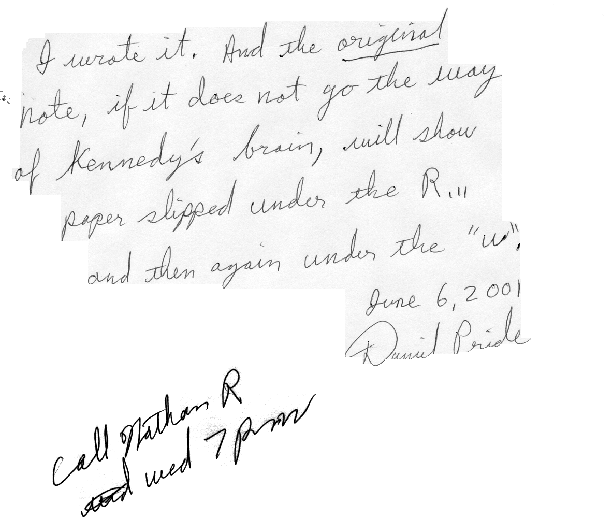 I wrote it. And the original
note, if it does not go the way
of Kennedy's brain, will show
paper slipped under the R,,,
and then again under the "w".
June 6, 2001
Daniel Pride
Call Nathan R
wed 7 pm